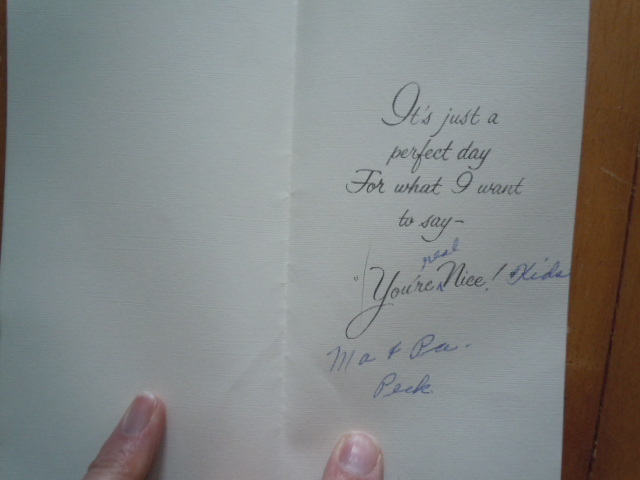 It's just a
perfect day
For what I want
to say—
real
"You're Nice! Kids
Ma & Pa.
Peck.